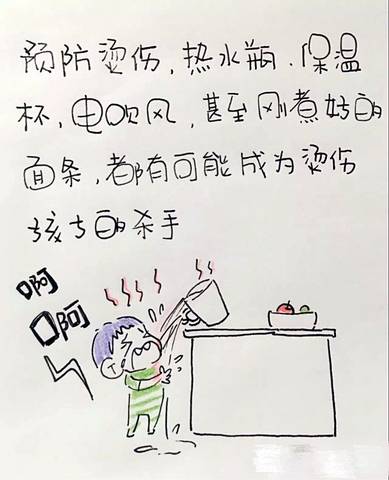 预防烫伤,热水瓶.保温
杯,电吹风,甚至刚煮好的
面条,都有可能成为烫伤
孩子的杀手
啊
啊